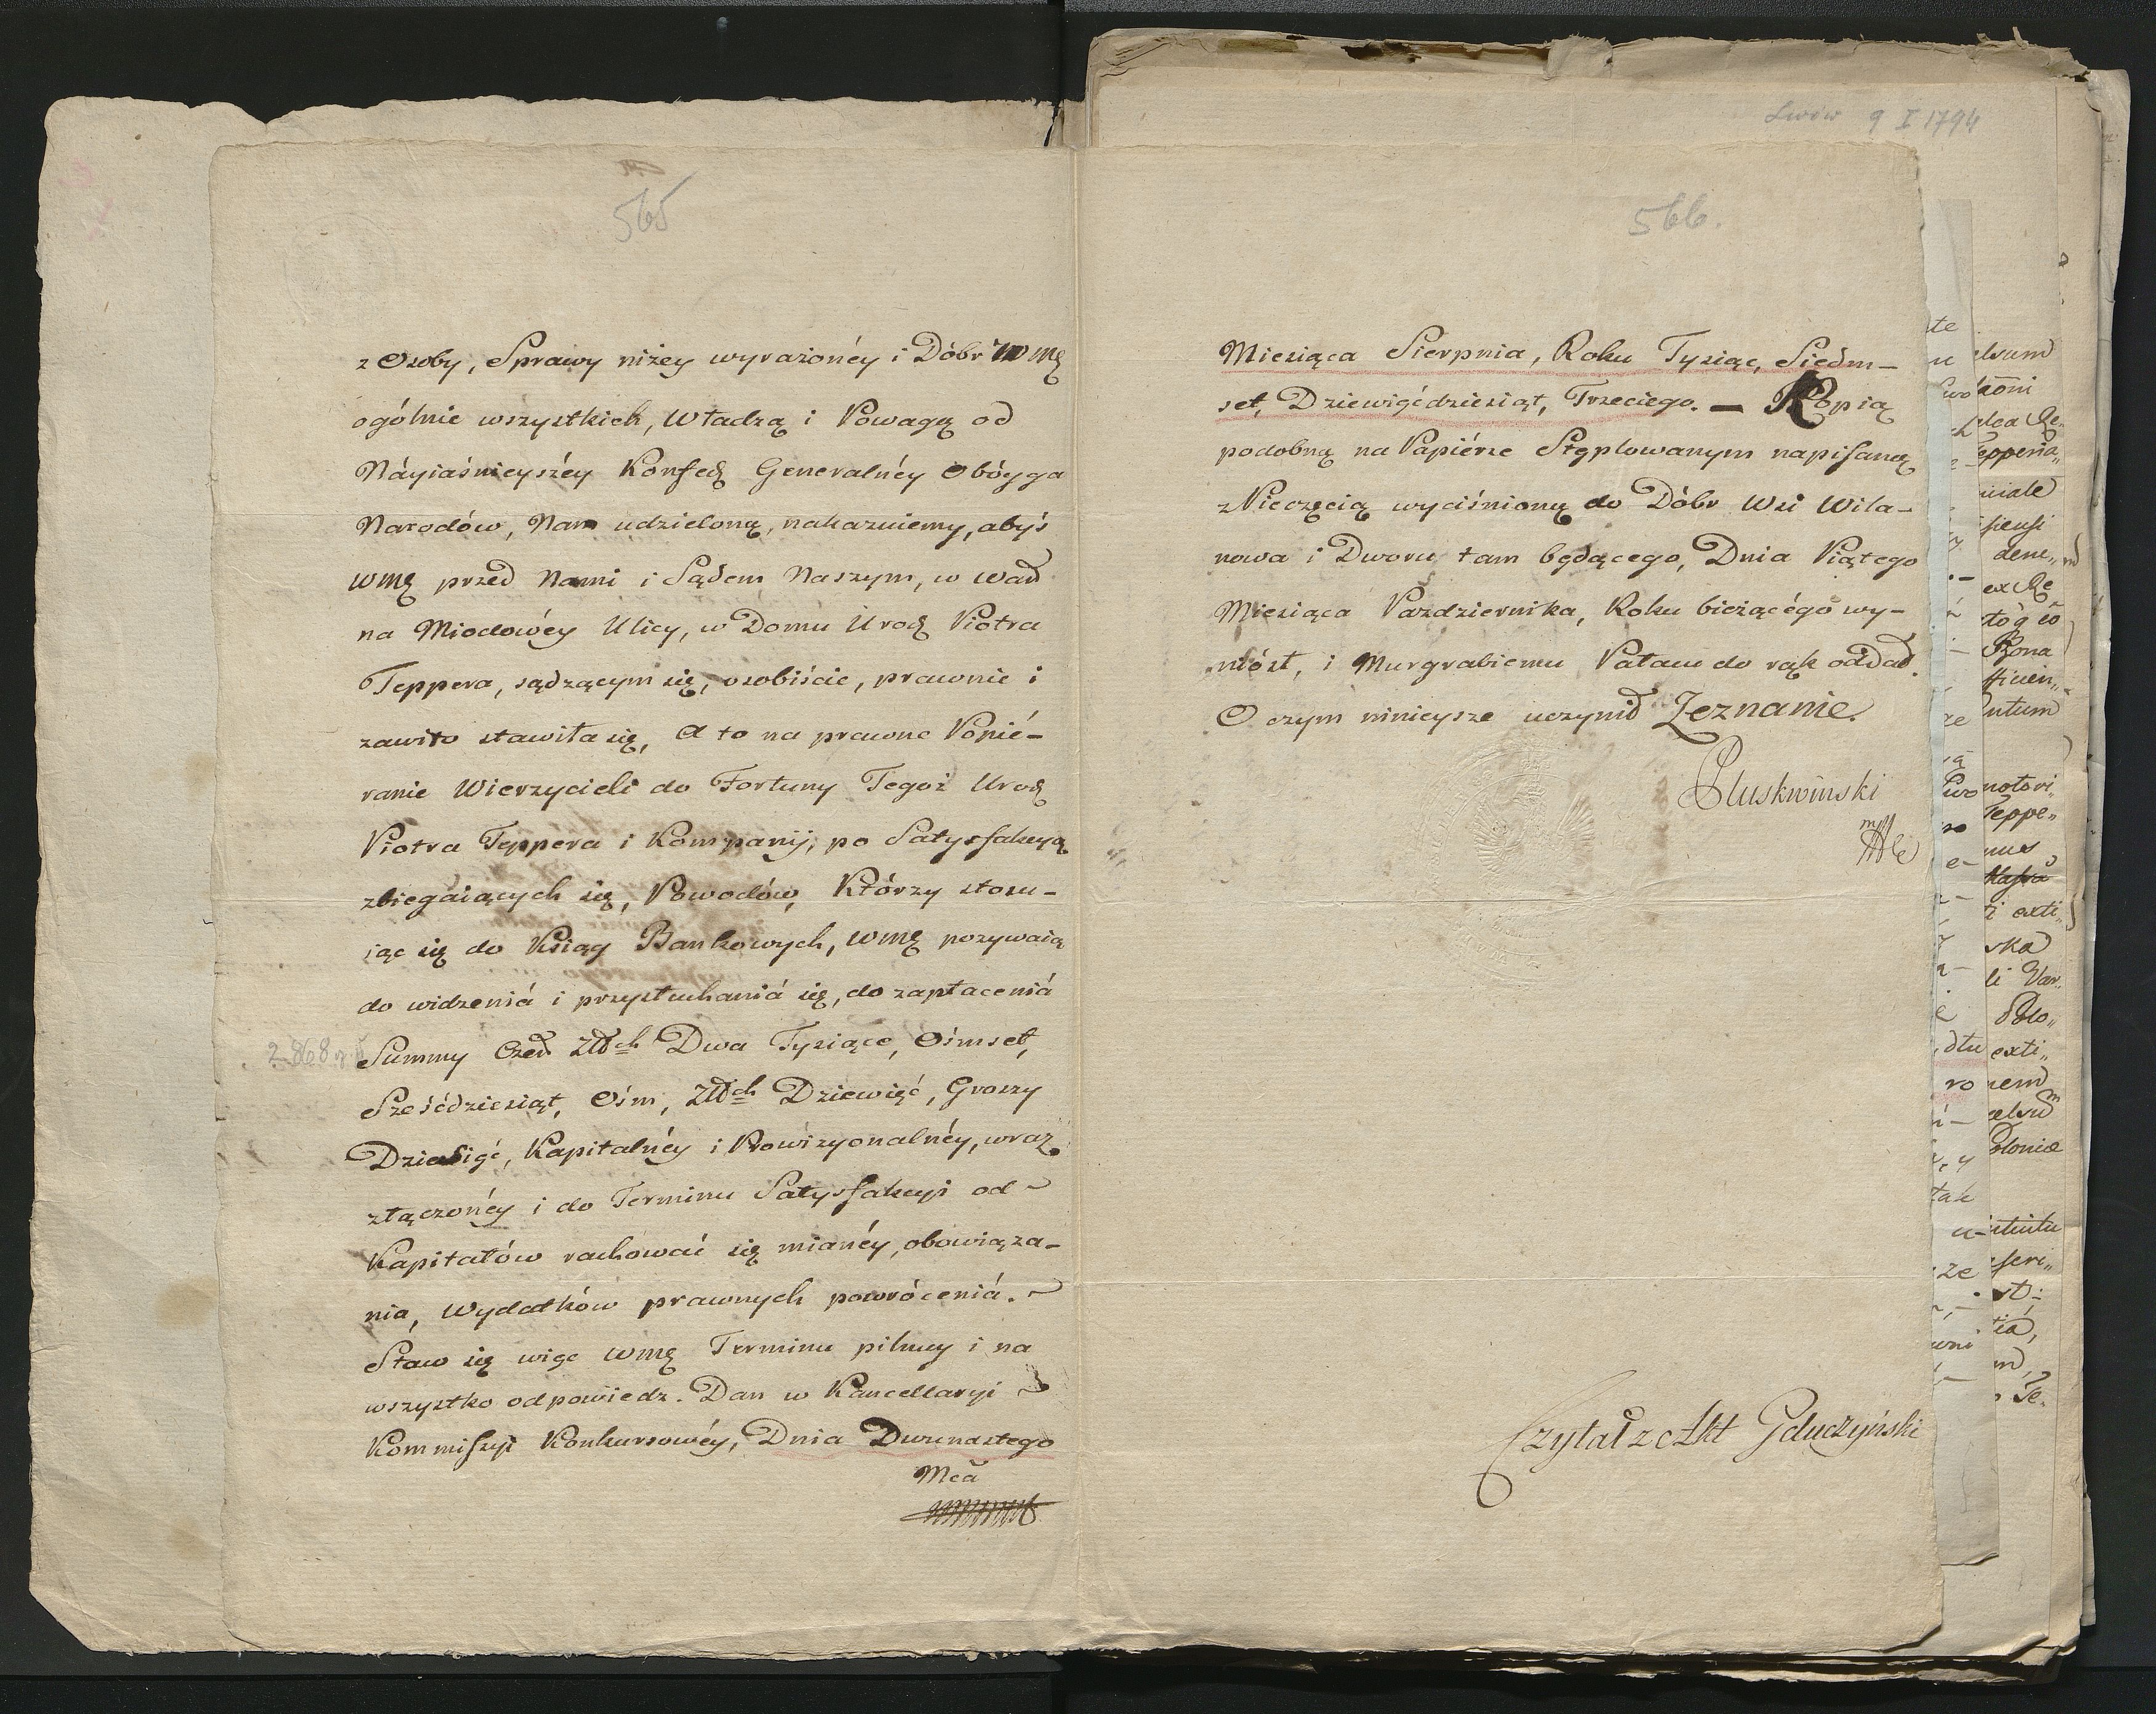 565
z Osoby, Sprawy niżey wyrażonéy i Dóbr WMę
ogólnie wszystkich, Władzą i Powagą od
Náyiaśnieyszéy Konfedę Generalnéy Obóyga
Narodów, Nam udzieloną, nakazuiemy, abyś
WMę przed Nami i Sądem Naszym, w Wad
na Miodowéy Ulicy, w Domu Urodę Piotra
Teppera, sądzącym się, osobiście, prawnie i
zawito stawiła się, A to na prawne Popié-
ranie Wierzycieli do Fortuny Tegoż Urodę
Piotra Teppera i Kompanij, po Satysfakcyą
zbiegaiących się, Powodów, Którzy stosu-
iąc się do Ksiąg Bankowych, WMę pozywaią
do widzeniá i przysłuchaniá się, do zapłaceniá
2868
Summy Czed Złłch Dwa Tysiące, Ośmset,
Sześćdziesiąt, Ośm, Złłch Dziewięć, Groszy
Dziesięć, Kapitalnéy i Prowizyonalnéy, wraz
złączonéy i do Terminu Satysfakcyi od
Kapitałów rachować się mianéy, obowiąza-
nia, Wydatków prawnych powróceniá.
Staw się więc WMę Terminu pilnuy i na
wszystko odpowiedz. Dan w Kancellaryi
Kommissyi Konkursowéy, Dnia Dwunastego
Mcã
Lwów 9 I 1794
566.
Miesiąca Sierpnia, Roku Tysiąc, Siedm-
set, Dziewięćdziesiąt, Trzeciego. — Kopią
podobną na Papiérze Stęplowanym napisaną
z Pieczęcią wyciśnioną do Dóbr Wsi Wila-
nowa i Dworu tam będącego, Dnia Piątego
Miesiąca Pazdziernika, Roku bieżącégo wy-
niósł, i Murgrabiemu Pałacu do rąk oddał.
O czym ninieysze uczynił Zeznanie.
Pluskwinski
Czytał z Akt Gduczyński